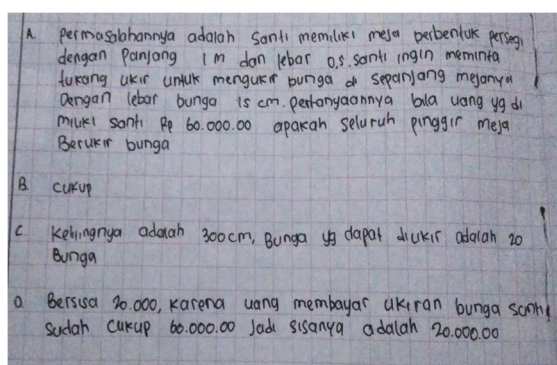 A. Permasalahannya adalah Santi memiliki meja berbentuk persegi
dengan Panjang 1 m dan lebar 0,5. Santi ingin meminta
tukang ukir untuk mengukir bunga di sepanjang mejanya
Dengan lebar bunga 15 cm. Pertanyaannya bila uang yg di
miliki santi Rp 60.000.00 apakah seluruh pinggir meja
Berukir bunga
B. cukup
C. Kelilingnya adalah 300 cm, Bunga yg dapat diukir adalah 20
Bunga
D. Bersisa 20.000, Karena uang membayar ukiran bunga santi
Sudah Cukup 60.000.00 Jadi sisanya adalah 20.000.00